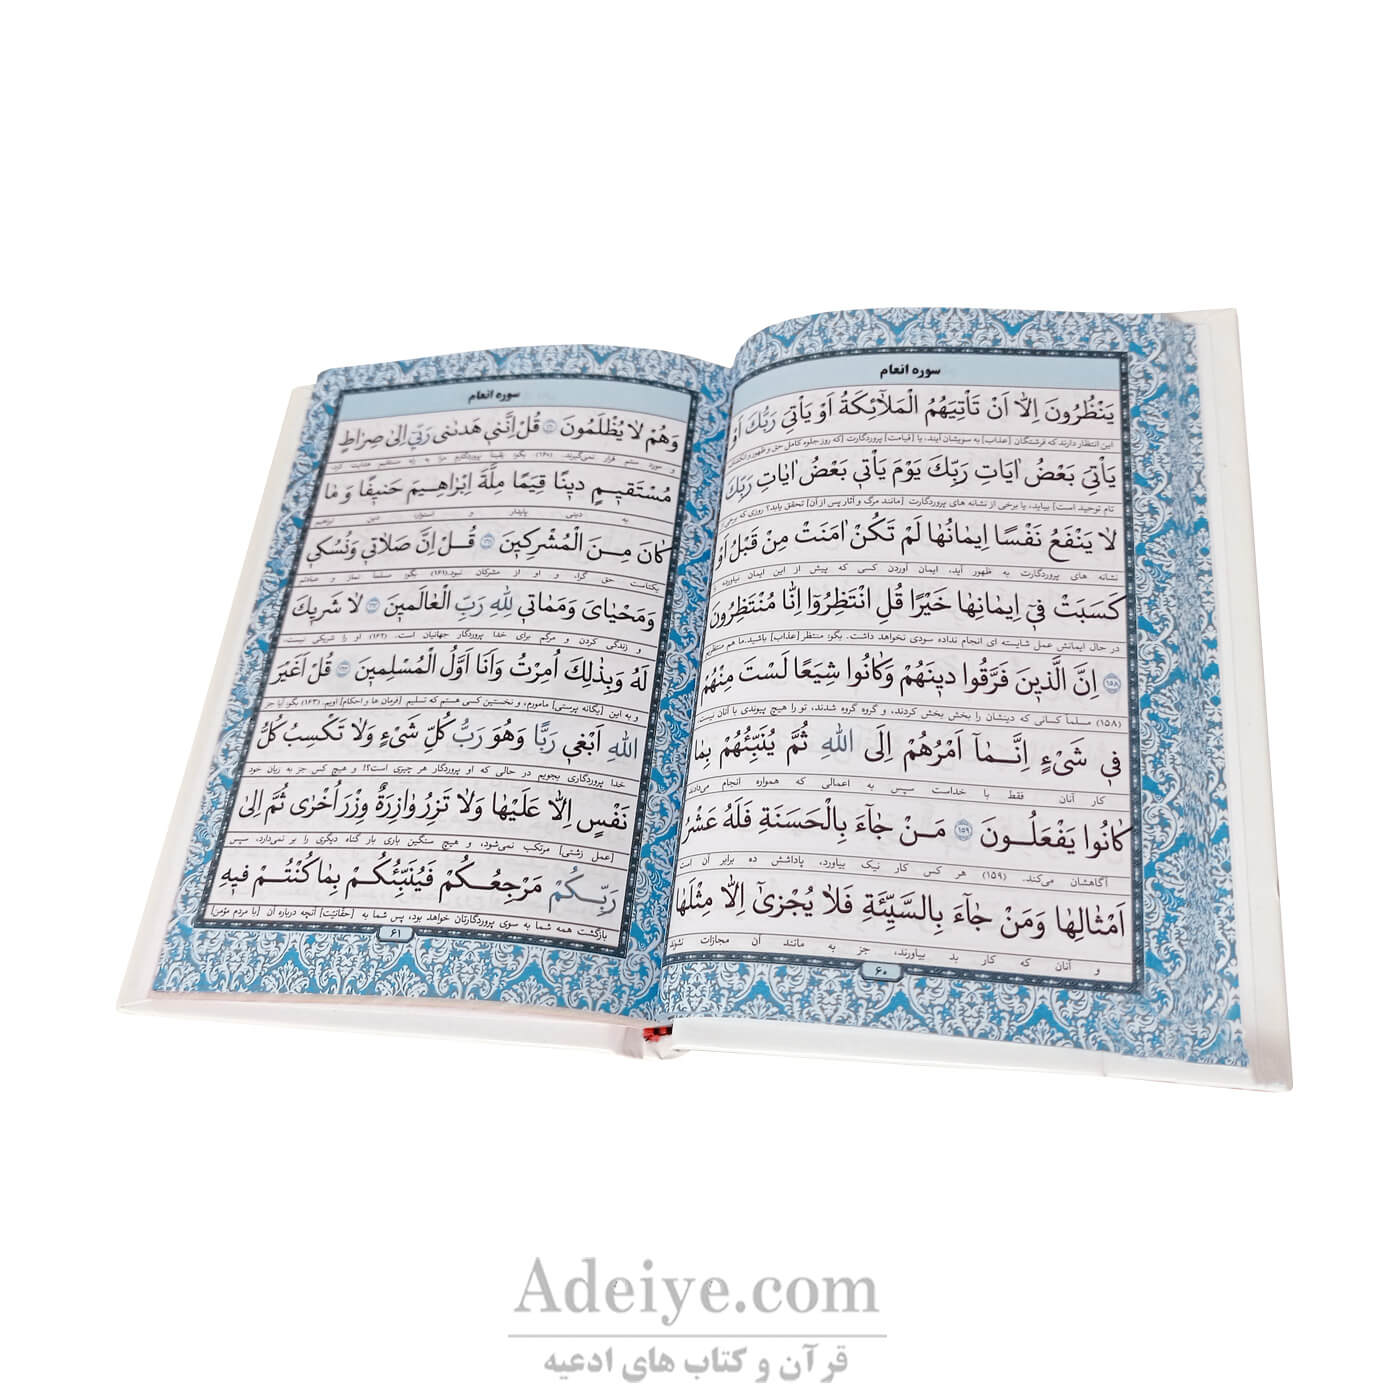 سوره انعام
يَنْظُرُونَ اِلّٰا اَنْ تَأْتِيَهُمُ الْمَلٰٓائِكَةُ اَوْ يَأْتِىَ رَبُّكَ اَوْ
این انتظار دارند که فرشتگان [عذاب] به سویشان آیند، یا [قیامت] پروردگارت [که روز جلوه کامل حق و ظهور و انکشاف
يَأْتِىَ بَعْضُ اٰيٰاتِ رَبِّكَ يَوْمَ يَأْتى بَعْضُ اٰيٰاتِ رَبِّكَ
تام توحید است] بیاید، یا برخی از نشانه های پروردگارت [مانند مرگ و آثار پس از آن] تحقق یابد؟ روزی که برخی از
لٰا يَنْفَعُ نَفْسًا اِيمٰانُهٰا لَمْ تَكُنْ اٰمَنَتْ مِنْ قَبْلُ اَوْ
نشانه های پروردگارت به ظهور آید، ایمان آوردن کسی که پیش از این ایمان نیاورده یا
كَسَبَتْ فىٓ اِيمٰانِهٰا خَيْرًا قُلِ انْتَظِرُوٓا اِنّٰا مُنْتَظِرُونَ
در حال ایمانش عمل شایسته ای انجام نداده سودی نخواهد داشت. بگو: منتظر [عذاب] باشید. ما هم منتظریم
﴿١٥٨﴾ اِنَّ الَّذينَ فَرَّقُوا دينَهُمْ وَكٰانُوا شِيَعًا لَسْتَ مِنْهُمْ
(۱۵۸) مسلما کسانی که دینشان را بخش بخش کردند، و گروه گروه شدند، تو را هیچ پیوندی با آنان نیست
فى شَىْءٍ اِنَّمٰٓا اَمْرُهُمْ اِلَى اللّٰهِ ثُمَّ يُنَبِّئُهُمْ بِمٰا
کار آنان فقط با خداست سپس به اعمالی که همواره انجام می‌دادند
كٰانُوا يَفْعَلُونَ ﴿١٥٩﴾ مَنْ جٰٓاءَ بِالْحَسَنَةِ فَلَهُ عَشْرُ
آگاهشان می‌کند. (۱۵۹) هر کس کار نیک بیاورد، پاداشش ده برابر آن است
اَمْثٰالِهٰا وَمَنْ جٰٓاءَ بِالسَّيِّئَةِ فَلٰا يُجْزىٰٓ اِلّٰا مِثْلَهٰا
و آنان که کار بد بیاورند، جز به مانند آن مجازات نشوند
۶۰
سوره انعام
وَهُمْ لٰا يُظْلَمُونَ ﴿١٦٠﴾ قُلْ اِنَّنى هَدٰىنى رَبّىٓ اِلىٰ صِرٰاطٍ
و مورد ستم قرار نمی‌گیرند. (۱۶۰) بگو: یقینا پروردگارم مرا به راه مستقیم هدایت کرد.
مُسْتَقيمٍ دينًا قِيَمًا مِلَّةَ اِبْرٰاهيمَ حَنيفًا وَ مٰا
به دینی پایدار و استوار، دین ابراهیم
كٰانَ مِنَ الْمُشْرِكينَ ﴿١٦١﴾ قُلْ اِنَّ صَلٰاتى وَنُسُكى
یکتاپرست حق گرا، و او از مشرکان نبود.(۱۶۱) بگو: مسلما نماز و عبادتم
وَمَحْيٰاىَ وَمَمٰاتى لِلّٰهِ رَبِّ الْعٰالَمينَ ﴿١٦٢﴾ لٰا شَريكَ
و زندگی کردن و مرگم برای خدا پروردگار جهانیان است. (۱۶۲) او را شریکی نیست،
لَهُ وَبِذٰلِكَ اُمِرْتُ وَاَنَا اَوَّلُ الْمُسْلِمينَ ﴿١٦٣﴾ قُلْ اَغَيْرَ
و به این [یگانه پرستی] مامورم، و نخستین کسی هستم که تسلیم [فرمان ها و احکام] اویم. (۱۶۳) بگو: آیا جز
اللّٰهِ اَبْغى رَبًّا وَهُوَ رَبُّ كُلِّ شَىْءٍ وَلٰا تَكْسِبُ كُلُّ
خدا پروردگاری بجویم در حالی که او پروردگار هر چیزی است؟! و هیچ کس جز به زیان خود
نَفْسٍ اِلّٰا عَلَيْهٰا وَلٰا تَزِرُ وٰازِرَةٌ وِزْرَ اُخْرىٰ ثُمَّ اِلىٰ
[عمل زشتی] مرتکب نمی‌شود، و هیچ سنگین باری بار گناه دیگری را بر نمی‌دارد، سپس
رَبِّكُمْ مَرْجِعُكُمْ فَيُنَبِّئُكُمْ بِمٰا كُنْتُمْ فيهِ
بازگشت همه شما به سوی پروردگارتان خواهد بود، پس شما به [حقانیّت] آنچه درباره آن [با مردم مؤمن]
۶۱
Adeiye.com
قرآن و کتاب های ادعیه